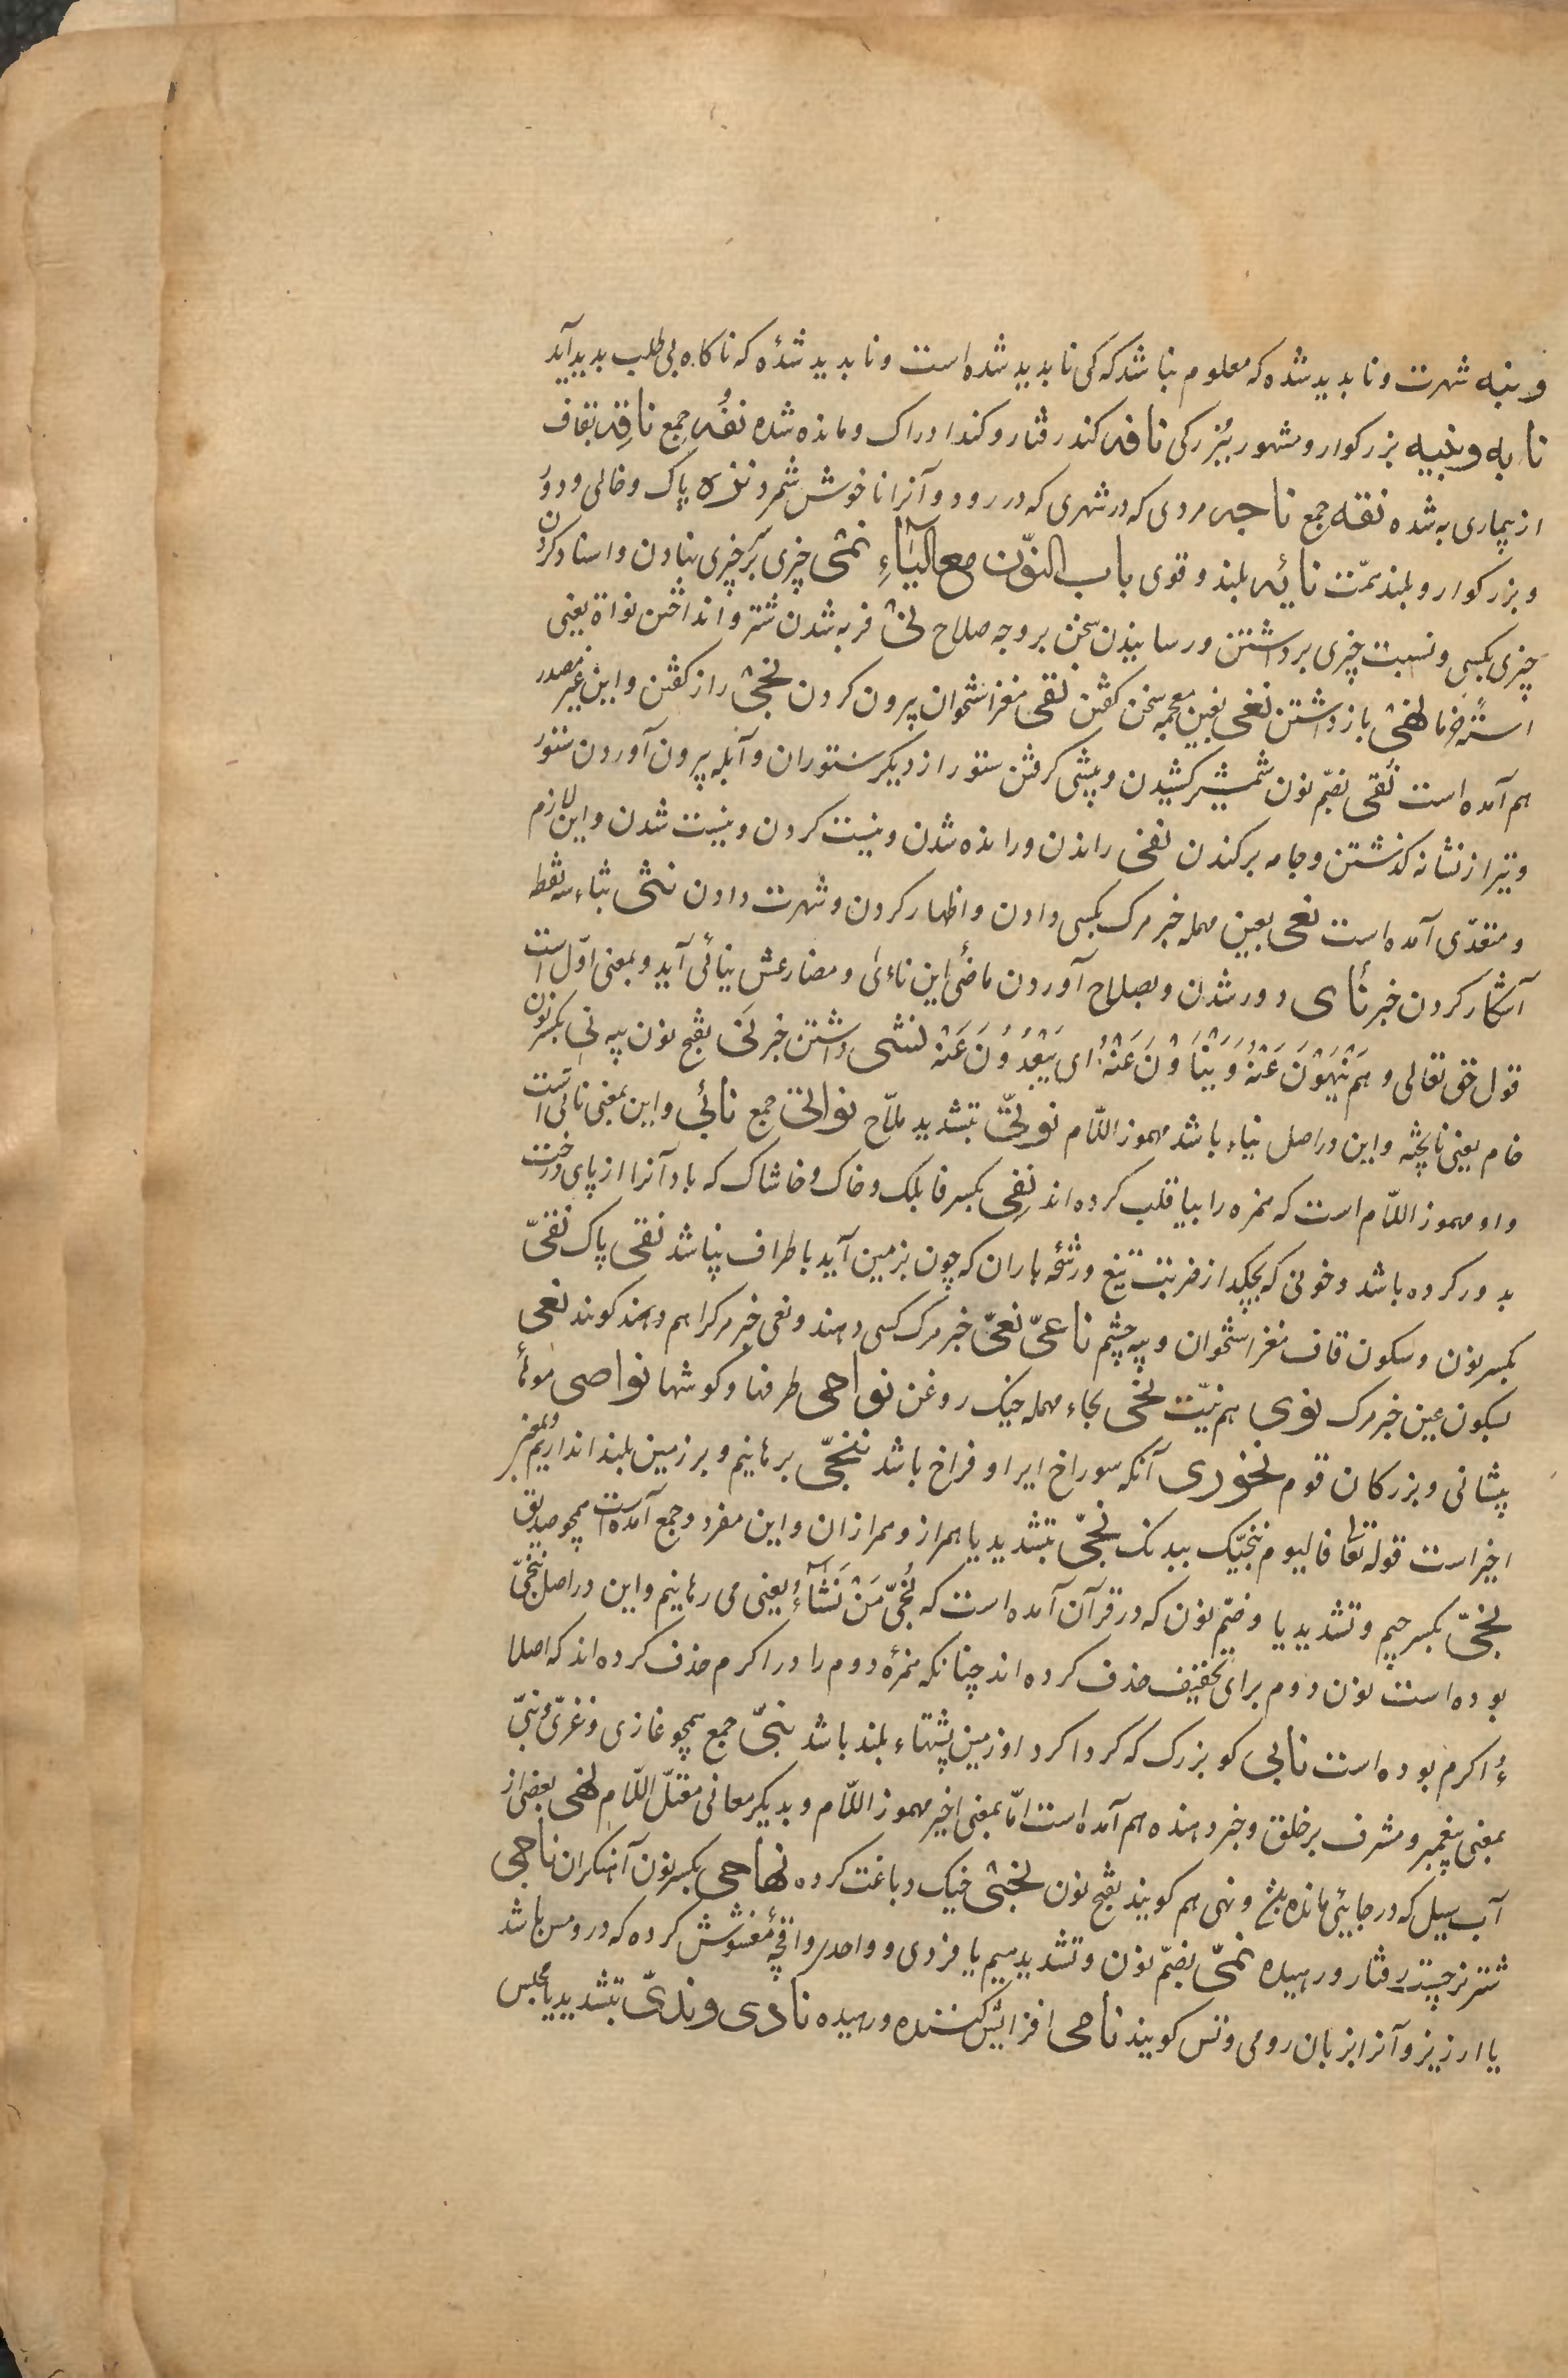 ونبه شهرت و نابدید شده که معلوم نباشد که کی نابدید شده است و نابدید شدهٔ که ناکاه بی طلب بدید آید
نابه ونبیه بزرکوار و مشهور ببزرکی نافه کند رفتار و کند ادراک و مانده شده نفّه جمع ناقه بقاف
از بیماری به شده نقه جمع ناجه مردی که در شهری که در رود و آنرا ناخوش شمرد نزه پاک و خالی و دور
و بزرکوار و بلند همّت نائه بلند و قوی باب النّون مع الیاء نمی چیزی بر چیزی نهادن و اسناد کردن
چیزی بکسی و نسبت چیزی برداشتن و رسانیدن سخن بر وجه صلاح نی فربه شدن شتر و انداختن نواة یعنی
استهٔ خرما نهی باز داشتن نغی بغین معجمه سخن کفتن نقی مغز استخوان بیرون کردن نجی راز کفتن و این غیر مصدر
هم آمده است نُقی بضمّ نون شمشیر کشیدن و پیشی کرفتن ستور از دیکر ستوران و آبله بیرون آوردن ستور
و تیر از نشانه کذشتن و جامه برکندن نفی راندن و رانده شدن و نیست کردن و نیست شدن و این لازم
و متعدّی آمده است نعی بعین مهمله خبر مرک بکسی دادن و اظهار کردن و شهرت دادن نثی بثاء سه نقطه
آشکار کردن خبر نأی دور شدن و بصلاح آوردن ماضی این ناءی و مضارعش ینائی آید و بمعنی اوّل است
قول حق تعالی و هم یَنْهَوْنَ عَنْهُ وَ یَنْأَوْنَ عَنْهُ ای یَبْعُدُونَ عَنْهُ نشی داشتن خبر نَی بفتح نون پیه نی بکسر نون
خام یعنی ناپخته و این در اصل نیاء باشد مهموز اللّام نوتیّ بتشدید ملّاح نواتی جمع نائی و این بمعنی نائی است
و او مهموز اللّام است که همزه را بیا قلب کرده اند نفی بکسر فا بلک و خاک و خاشاک که باد آنرا از پای درخت
بدور کرده باشد و خونی که بچکد از ضربت تیغ و رشّهٔ باران که چون بزمین آید باطراف بپاشد نقی پاک نقیّ
بکسر نون و سکون قاف مغز استخوان و پیه چشم ناعیّ نعیّ خبر مرک کسی دهند و نعی خبر مرکرا هم دهند کویند نعی
بسکون عین خبر مرک نوی هم نیّت نحی بحاء مهمله خیک روغن نواحی طرفها و کوشها نواصی مویهأ
پیشانی و بزرکان قوم نخوری آنکه سوراخ ایر او فراخ باشد ننجّی برهانیم و بر زمین بلند اندازیم و بمعنی
اخیر است قوله تعا فالیوم ننجّیک ببدنک نجیّ بتشدید یا همراز و همرازان و این مفرد و جمع آمده است همچو صدیق
نجیّ بکسر جیم و تشدید یا و ضمّ نون که در قرآن آمده است که نُجّی مَنْ نَشآءُ یعنی می رهانیم و این در اصل ننجّی
بوده است نون دوم برای تخفیف حذف کرده اند چنانکه همزهٔ دوم را در اکرم حذف کرده اند که اصلا
ءُاکرم بوده است نابی کو بزرک که کرداکرد او زمین پشتهاء بلند باشد نبیّ جمع همچو غازی و غزیّ و نبیّ
بمعنی پیغمبر و مشرف بر خلق و خبر دهنده هم آمده است امّا بمعنی اخیر مهموز اللّام و بدیکر معانی معتلّ اللّام نهی بعضی از
آب سیل که در جایی مانده باشد و نهی هم کویند بفتح نون نجثی خیک دباغت کرده نهامی بکسر نون آهنکران ناجی
شتر نر چست رفتار و رهیده نمیّ بضمّ نون و تشدید میم یا فزدی و واحد او اقچهٔ مغشوش کرده که در روم باشد
یا ارزیز و آنرا بزبان رومی و تس کویند نامی افزایش کننده و رهیده نادی وندیّ بتشدید یا مجلس